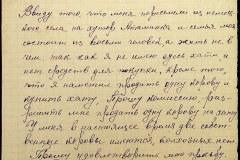 Ввиду того, что меня переселили из немец
кого села на хутор Атаманка и семья моя
состоит из восьми человек, а жить не в
чем так как я не имею здесь хати и
нет средств для покупки, кроме того,
что я наметил продать одну корову и
купить хату. Прошу комиссию, раз-
решить мне продать одну корову на хату
У меня в настоящее время две собст
венные коровы имеются, колхозных нет
Прошу удовлетворить мою просьбу